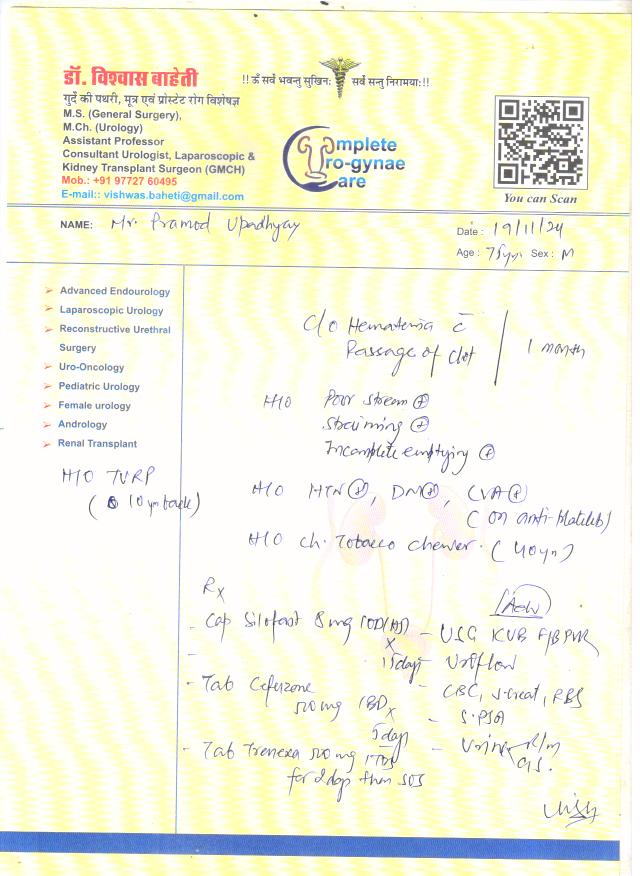 डॉ. विश्वास बाहेती
!! ऊँ सर्वे भवन्तु सुखिनः सर्वे सन्तु निरामयाः !!
गुर्दे की पथरी, मूत्र एवं प्रोस्टेट रोग विशेषज्ञ
M.S. (General Surgery),
M.Ch. (Urology)
Assistant Professor
Consultant Urologist, Laparoscopic &
Kidney Transplant Surgeon (GMCH)
Mob.: +91 97727 60495
E-mail:: vishwas.baheti@gmail.com
Complete
Uro-gynae
Care
You can Scan
NAME: Mr. Pramod Upadhyay
Date : 19/11/24
Age : 75yrs Sex : M
Advanced Endourology
Laparoscopic Urology
Reconstructive Urethral
Surgery
Uro-Oncology
Pediatric Urology
Female urology
Andrology
Renal Transplant
H/O TURP
( 10 yrs back)
C/o Hematuria c̄
Passage of clot
1 month
H/O Poor stream ⊕
straining ⊕
Incomplete emptying ⊕
H/O HTN⊕, DM⊕, CVA⊕
(on anti-platelets)
H/O ch. Tobacco chewer. (40yrs)
Rx
Adv
- Cap Silofast 8mg 1OD(HS)
x
15days
- USG KUB F/B PVR
- Uroflow
- CBC, S.creat, RBS
- S.PSA
- Urine R/m
C/S.
- Tab Cefuzone
500mg 1BD x
5days
- Tab Trenexa 500mg 1TDS
for 2days then SOS